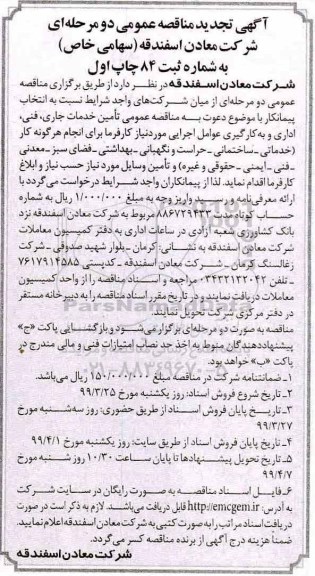 آگهی تجدید مناقصه عمومی دو مرحله‌ای
شرکت معادن اسفندقه (سهامی خاص)
به شماره ثبت ۸۴ چاپ اول
شرکت معادن اسفندقه در نظر دارد از طریق برگزاری مناقصه
عمومی دو مرحله‌ای از میان شرکت‌های واجد شرایط نسبت به انتخاب
پیمانکار با موضوع دعوت به مناقصه عمومی تأمین خدمات جاری، فنی،
اداری و به‌کارگیری عوامل اجرایی مورد نیاز کارفرما برای انجام هرگونه کار
(خدماتی_ساختمانی_حراست و نگهبانی_بهداشتی_فضای سبز_معدنی
_فنی_ایمنی_حقوقی و غیره) و تأمین وسایل مورد نیاز حسب نیاز و ابلاغ
کارفرما اقدام نماید. لذا از پیمانکاران واجد شرایط درخواست می‌گردد با
ارائه معرفی‌نامه و رسید واریز وجه به مبلغ ۱/۰۰۰/۰۰۰ ریال به شماره
حساب کوتاه‌مدت ۸۸۶۷۲۹۴۳۳ مربوط به شرکت معادن اسفندقه نزد
بانک کشاورزی شعبه آزادی در ساعات اداری به دفتر کمیسیون معاملات
شرکت معادن اسفندقه به نشانی: کرمان_بلوار شهید صدوقی_شرکت
زغالسنگ کرمان_شرکت معادن اسفندقه_کدپستی ۷۶۱۷۹۱۴۵۸۵
_تلفن ۰۳۴۳۲۱۳۲۰۴۲ مراجعه و اسناد مناقصه را از واحد کمیسیون
معاملات دریافت نمایند و در تاریخ مقرر اسناد مناقصه را به دبیرخانه مستقر
در دفتر مرکزی شرکت تحویل نمایند.
مناقصه به صورت دو مرحله‌ای برگزار می‌شود و بازگشایی پاکت «ج»
پیشنهاددهندگان منوط به اخذ حد نصاب امتیازات فنی و مالی مندرج در
پاکت «ب» خواهد بود.
۱_ضمانتنامه شرکت در مناقصه مبلغ ۱۵۰/۰۰۰/۰۰۰ ریال می‌باشد.
۲_تاریخ شروع فروش اسناد: روز یکشنبه مورخ ۹۹/۳/۲۵
۳_تاریخ پایان فروش اسناد از طریق حضوری: روز سه‌شنبه مورخ
۹۹/۳/۲۷
۴_تاریخ پایان فروش اسناد از طریق سایت: روز یکشنبه مورخ ۹۹/۴/۱
۵_تاریخ تحویل پیشنهادها تا پایان ساعت ۱۰/۳۰ روز شنبه مورخ
۹۹/۴/۷
۶_فایل اسناد مناقصه به صورت رایگان در سایت شرکت
به آدرس: http://emcgem.ir قابل دریافت می‌باشد. لازم به ذکر است در صورت
دریافت اسناد مراتب را به صورت کتبی به شرکت معادن اسفندقه اعلام نمایید.
ضمناً هزینه درج آگهی از برنده مناقصه کسر می‌گردد.
شرکت معادن اسفندقه